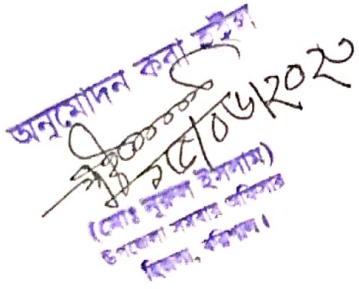 অনুমোদন করা হইল
(মোঃ নূরুল ইসলাম)
উপজেলা সমবায় অফিসার
হিজলা, বরিশাল।